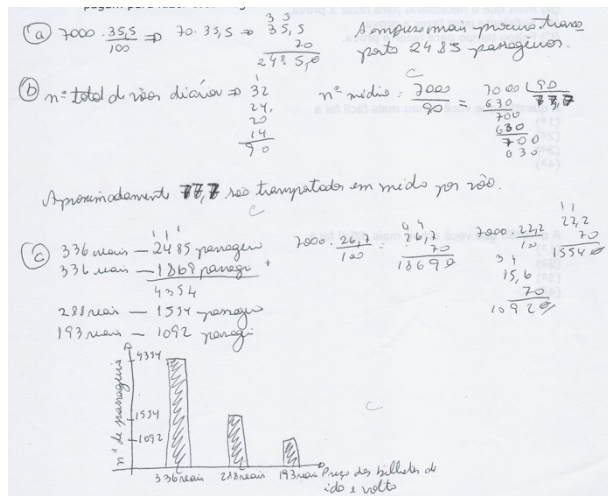 (a) 7000 . 35,5/100 => 70 . 35,5 => 35,5
70
2485,0
A empresa mais procura trans
porta 2485 passageiros.
(b) nº total de vôos diários => 32
24,
20
14
90
nº médio: 7000/90 = 7000 90
630 77,7
700
630
700
630
Aproximadamente 77,7 são transportados em média por vôo.
(c) 336 reais — 2485 passageiro
336 reais — 1869 passagei +
4354
288 reais — 1554 passageiro
193 reais — 1092 passagei
7000 . 26,7/100 = 26,7
70
18690
7000 . 22,2/100
22,2
70
15540
15,6
70
10920
nº de passageiros
4354
1554
1092
336 reais 288 reais 193 reais Preço dos bilhetes de
ida e volta